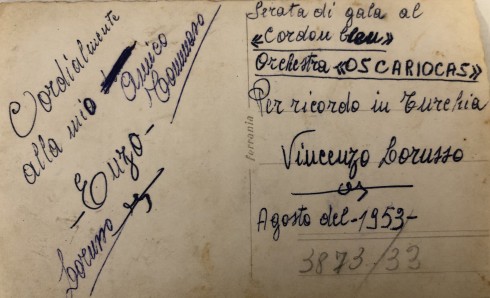 Cordialmente
alla mio amico
Tommaso
- Enzo -
Lorusso
ferrania
Serata di gala al
«Cordon bleu»
Orchestra «OS CARIOCAS»
Per ricordo in Turchia
Vincenzo Lorusso
Agosto del - 1953 -
3873/33